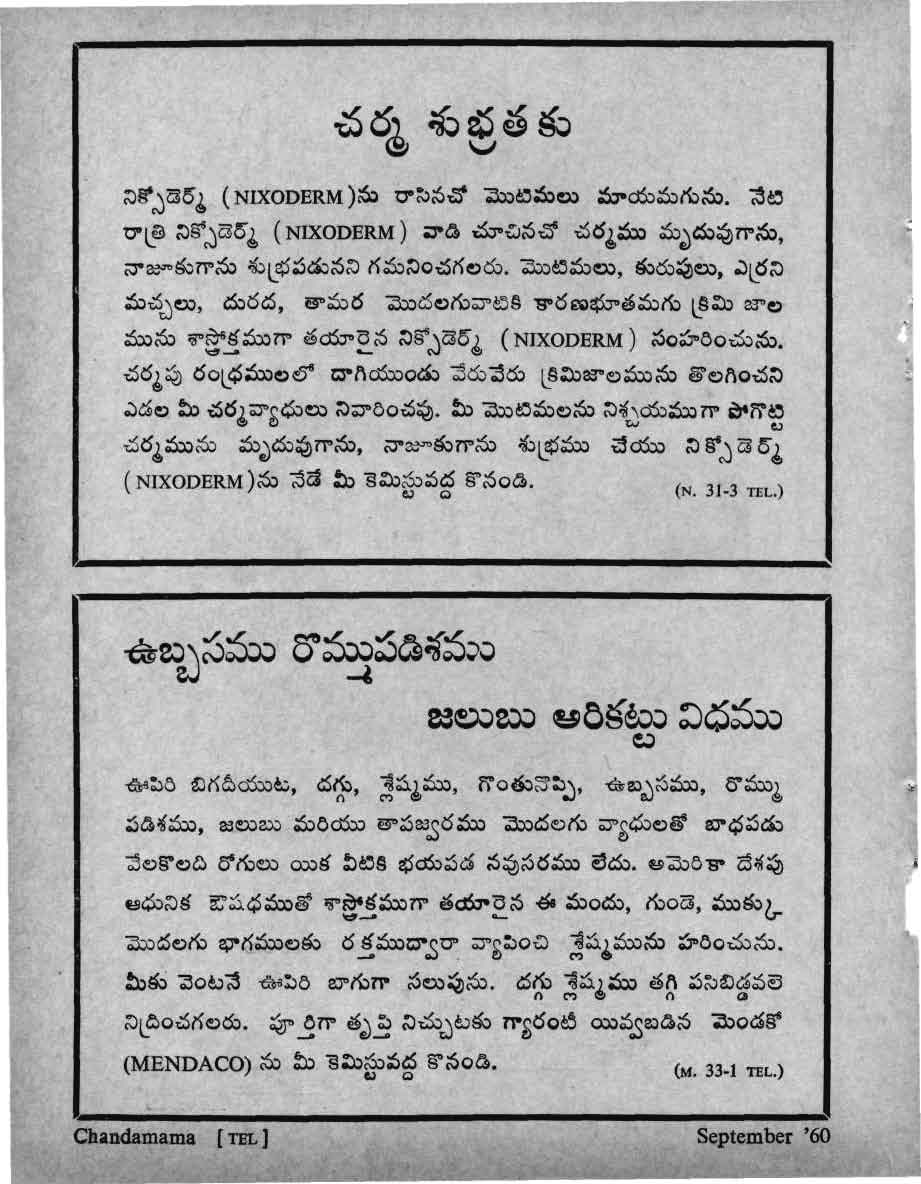 చర్మ శుభ్రతకు
నిక్సోడెర్మ్ (NIXODERM)ను రాసినచో మొటిమలు మాయమగును. నేటి
రాత్రి నిక్సోడెర్మ్ (NIXODERM) వాడి చూచినచో చర్మము మృదువుగాను,
నాజూకుగాను శుభ్రపడునని గమనించగలరు. మొటిమలు, కురుపులు, ఎర్రని
మచ్చలు, దురద, తామర మొదలగువాటికి కారణభూతమగు క్రిమి జాల
మును శాస్త్రోక్తముగా తయారైన నిక్సోడెర్మ్ (NIXODERM) సంహరించును.
చర్మపు రంధ్రములలో దాగియుండు వేరువేరు క్రిమిజాలమును తొలగించని
ఎడల మీ చర్మవ్యాధులు నివారించవు. మీ మొటిమలను నిశ్చయముగా పోగొట్టి
చర్మమును మృదువుగాను, నాజూకుగాను శుభ్రము చేయు నిక్సోడెర్మ్
(NIXODERM)ను నేడే మీ కెమిస్టువద్ద కొనండి.
(N. 31-3 TEL.)
ఉబ్బసము రొమ్ముపడిశము
జలుబు అరికట్టు విధము
ఊపిరి బిగదీయుట, దగ్గు, శ్లేష్మము, గొంతునొప్పి, ఉబ్బసము, రొమ్ము
పడిశము, జలుబు మరియు తాపజ్వరము మొదలగు వ్యాధులతో బాధపడు
వేలకొలది రోగులు యిక వీటికి భయపడ నవుసరము లేదు. అమెరికా దేశపు
ఆధునిక ఔషధముతో శాస్త్రోక్తముగా తయారైన ఈ మందు, గుండె, ముక్కు
మొదలగు భాగములకు రక్తముద్వారా వ్యాపించి శ్లేష్మమును హరించును.
మీకు వెంటనే ఊపిరి బాగుగా సలుపును. దగ్గు శ్లేష్మము తగ్గి పసిబిడ్డవలె
నిద్రించగలరు. పూర్తిగా తృప్తి నిచ్చుటకు గ్యారంటీ యివ్వబడిన మెండకో
(MENDACO) ను మీ కెమిస్టువద్ద కొనండి.
(M. 33-1 TEL.)
Chandamama [TEL]
September '60